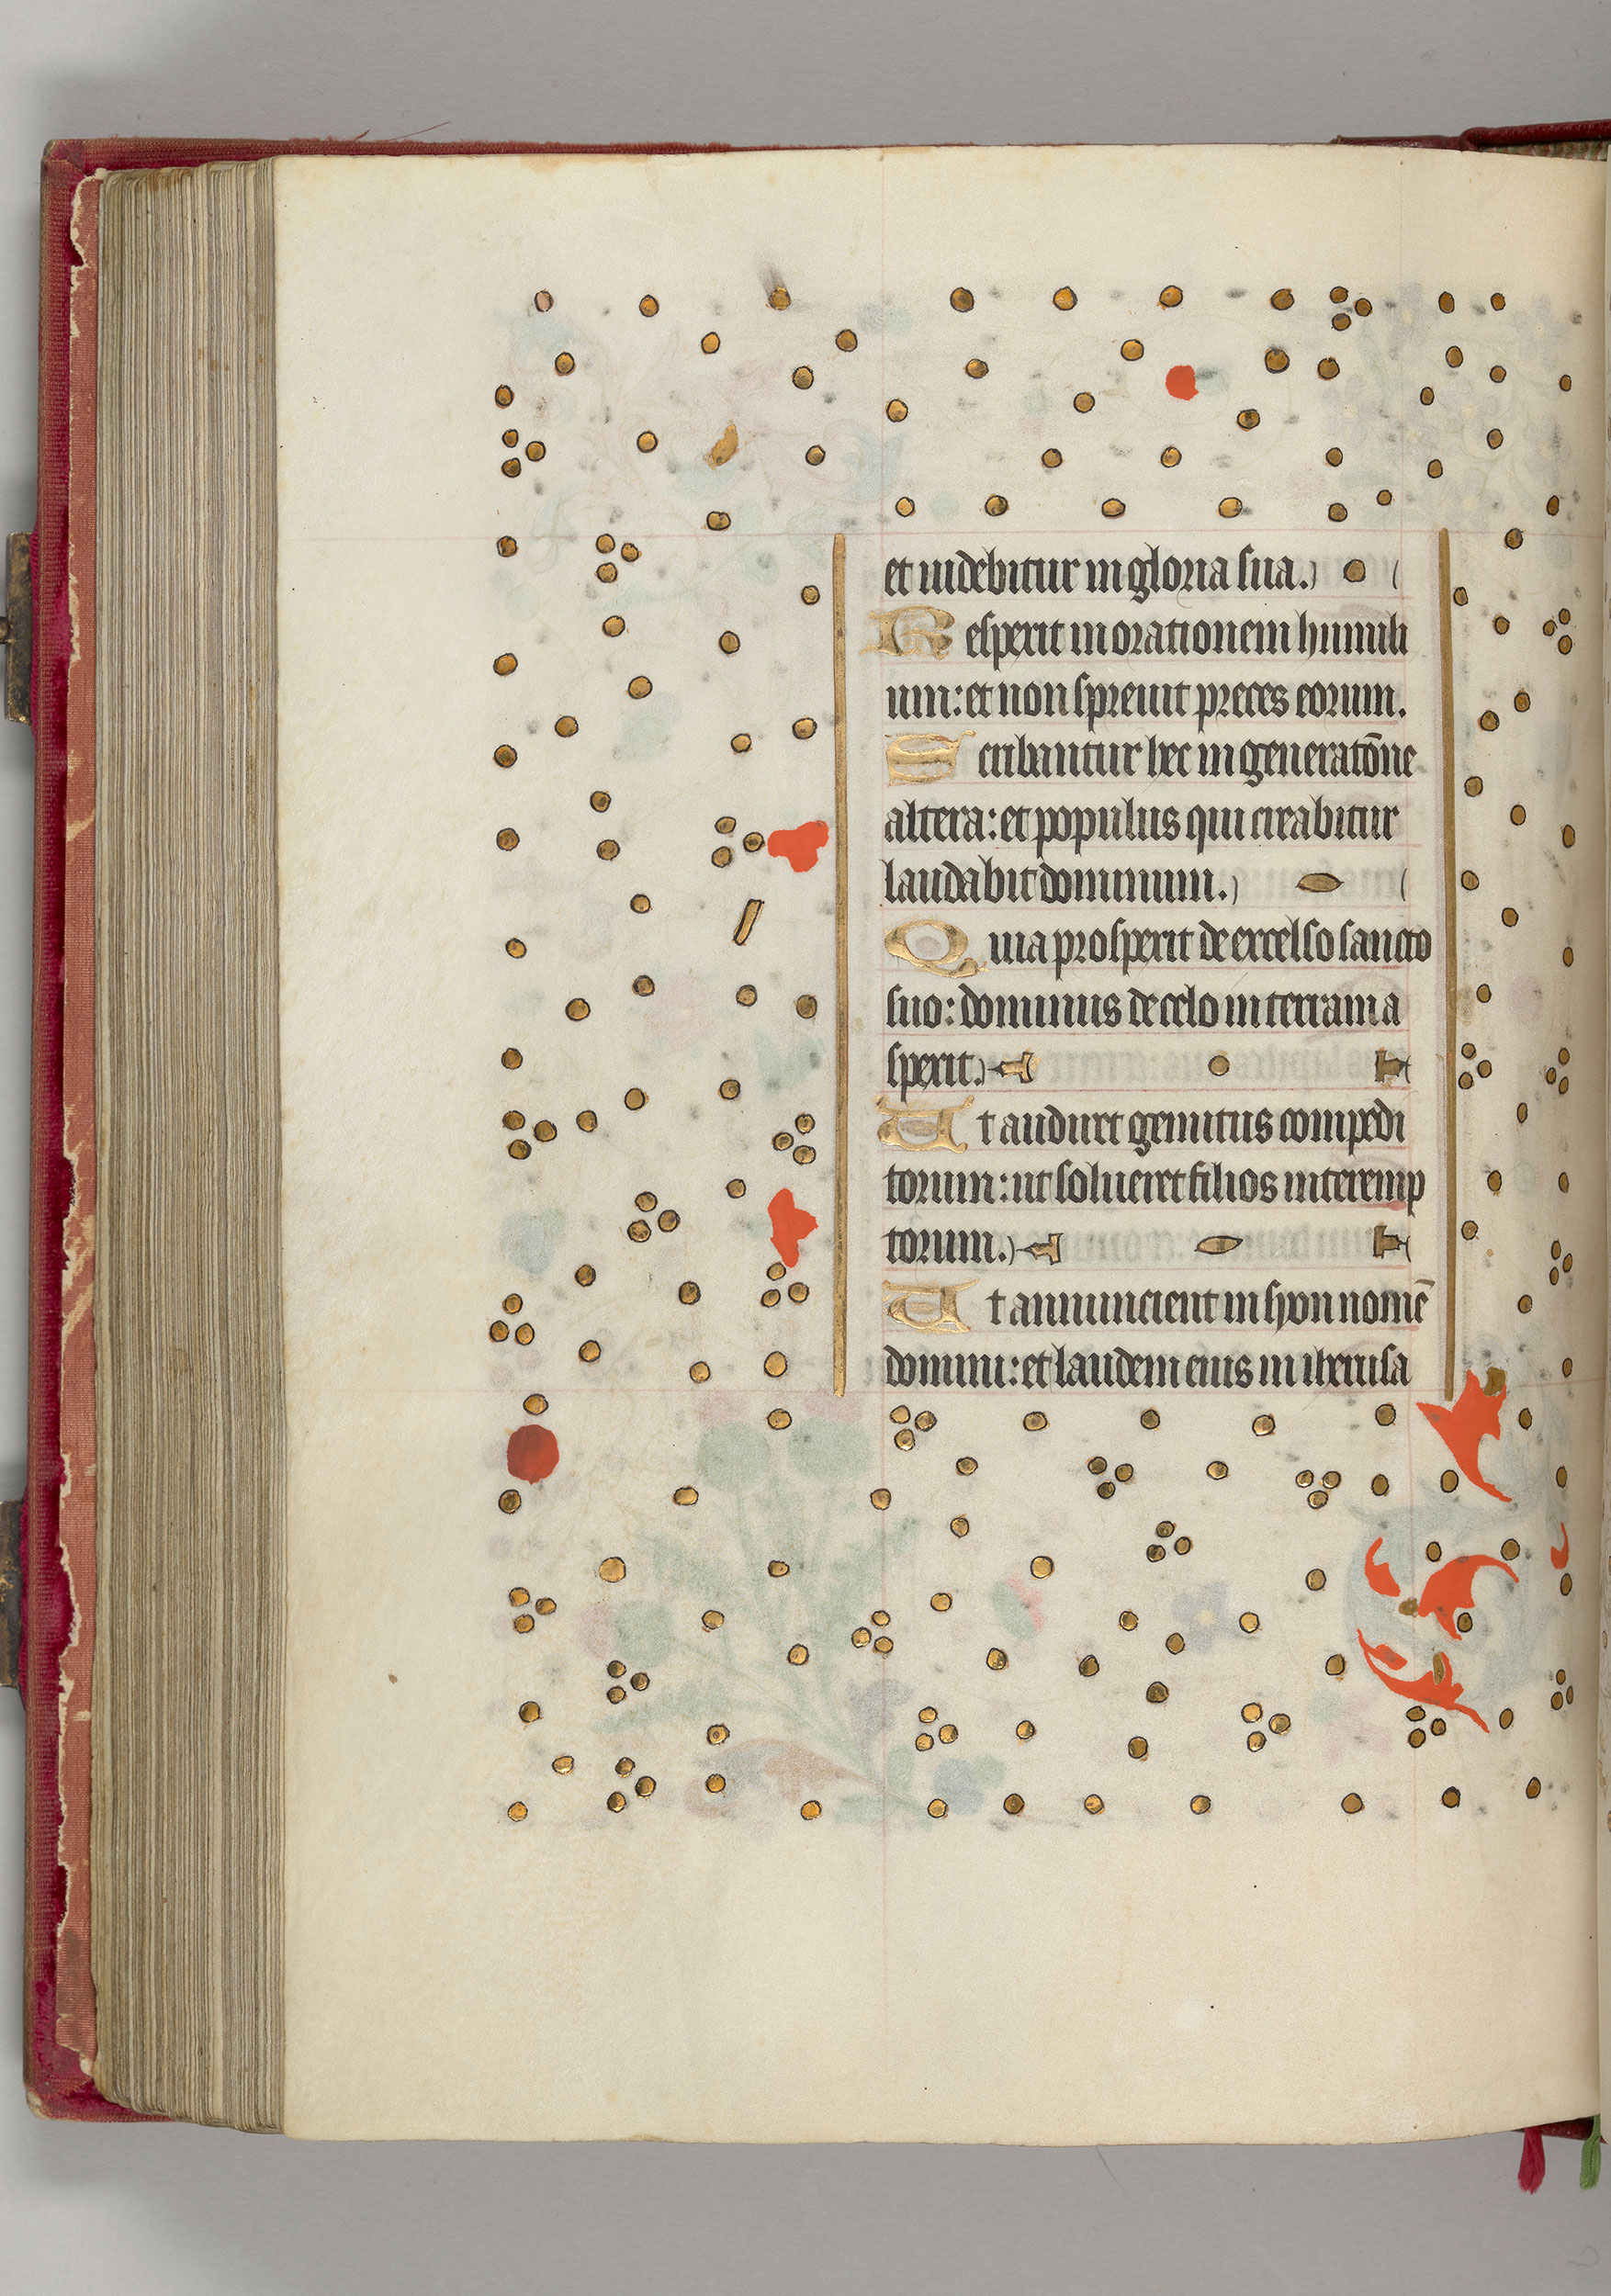 et uidebitur in gloria sua.
Respexit in orationem humili
um: et non spreuit preces eorum.
Scribantur hec in generatōne
altera: et populus qui creabitur
laudabit dominum.
Quia prospexit de excelso sancto
suo: dominus de celo in terram a
spexit.
Ut audiret gemitus compedi
torum: ut solueret filios interemp
torum.
Ut annuncient in syon nomē
domini: et laudem eius in iherusa